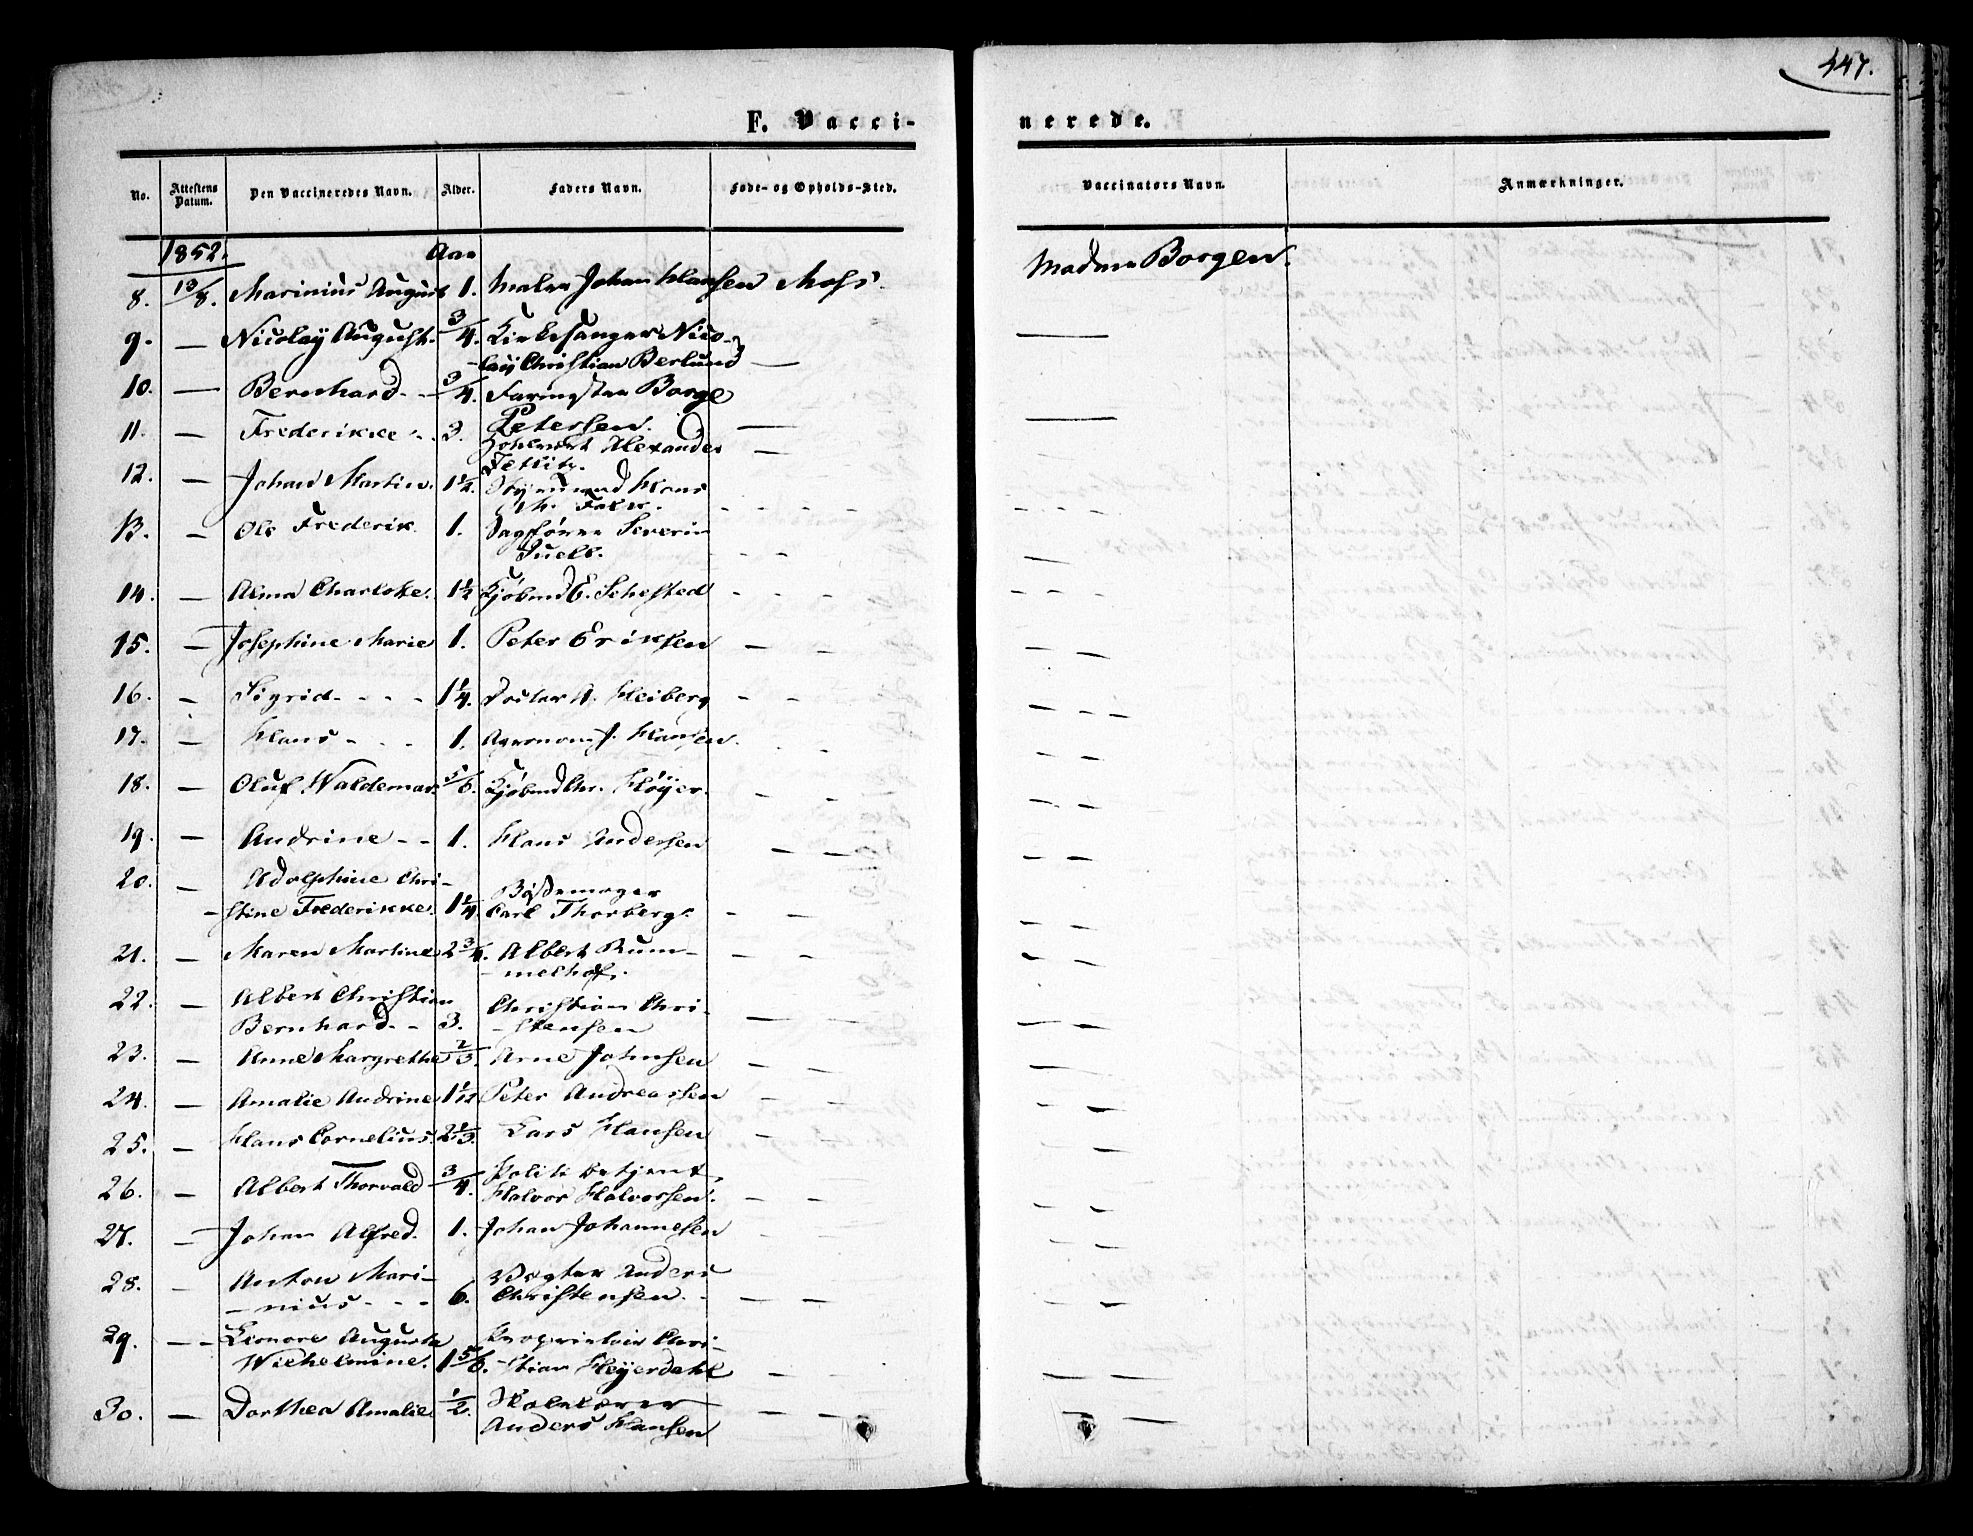 447.
F. Vacci-
nerede.
No. Attestens Datum. Den Vaccineredes Navn. Alder. Faders Navn. Føde- og Opholds-Sted. Vaccinators Navn. Anmærkninger.
1852. Aar
8. 13/8. Marinius August 1. Maler Johan Hansen Moss. Madam Borgen.
9. — Nicolay August. 3/4. Kirkesanger Nico-
lay Christian Berlund —
10. — Bernhard - - 3/4. Farimester Borge
Petersen. —
11. — Frederikke - . 3. Alexander
—
12. — Johan Martin. 1 1/2. Hans
- - - -
13. — Ole Frederik. 1. Sagfører Severin
Juell. - -
14. — Alma Charlotte. 1 1/2 Kjøbmd E. Sehested - - -
15. — Josephine Marie 1. Peter Eriksen — -
16. - Sigrid - - - - 1 1/4. Doctor A. Heiberg - - -
17. — Hans - - - 1. Agronom J. Hansen. - -
18. — Oluf Waldemar 5/6. Kjøbmd Chr. Høyer. - -
19. — Andrine - - 1. Hans Andersen — —
20. — Adolphine Chri-
- stine Frederikke. 1 1/4. Bøssemager
Carl Thorberg. - —
21. — Maren Martine 2 3/4. Albert Rum-
- melhof. — -
22. — Albert Christian
Bernhard. - 3. Christian Chri-
- stensen — —
23. — Anne Margrethe 2/3. Arne Johnsen — —
24. — Amalie Andrine 1 1/12 Peter Andreassen — —
25. — Hans Cornelius. 2 1/3. Lars Hansen —
26. - Albert Thorvald 3/4. Politibetjent
Halvor Halvorsen. — —
27. — Johan Alfred. 1. Johan Johannesen - -
28. - Anton Mari-
- nius - - - 6. Vægter Anders
Christensen. - — —
29. - - Leonore Augusta
Wilhelmine. 1 5/6. Proprietair Chri-
- stian Heyerdahl — -
30. — Dorthea Amalie 1/2. Skolelærer
Anders Hansen — —